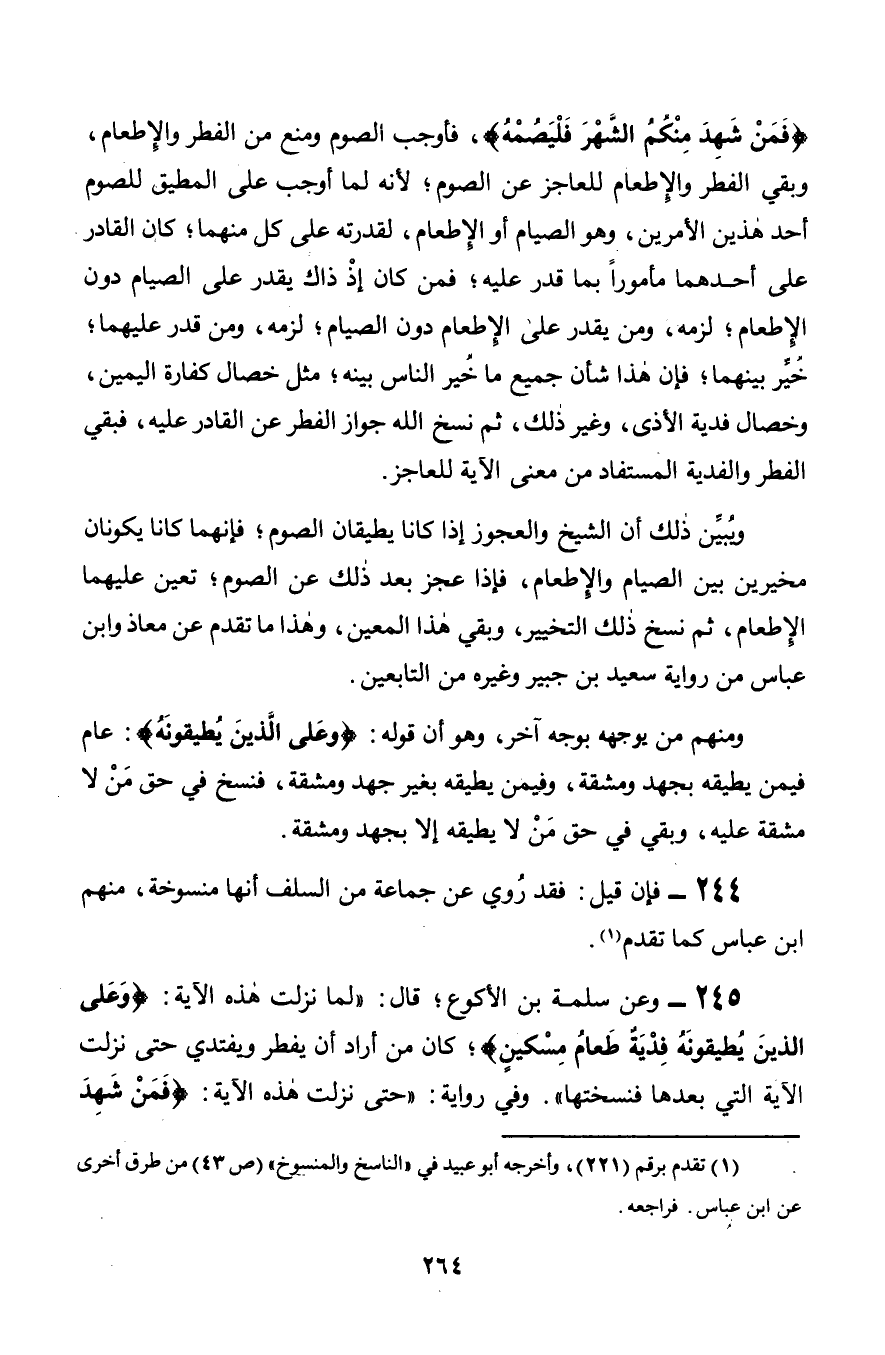 ﴿فَمَنْ شَهِدَ مِنْكُمُ الشَّهْرَ فَلْيَصُمْهُ﴾، فأوجب الصوم ومنع من الفطر والإطعام،
وبقي الفطر والإطعام للعاجز عن الصوم؛ لأنه لما أوجب على المطيق للصوم
أحد هٰذين الأمرين، وهو الصيام أو الإطعام، لقدرته على كل منهما؛ كان القادر
على أحدهما مأموراً بما قدر عليه؛ فمن كان إذْ ذاك يقدر على الصيام دون
الإطعام؛ لزمه، ومن يقدر على الإطعام دون الصيام؛ لزمه، ومن قدر عليهما؛
خُيِّر بينهما؛ فإن هٰذا شأن جميع ما خُير الناس بينه؛ مثل خصال كفارة اليمين،
وخصال فدية الأذى، وغير ذٰلك، ثم نسخ الله جواز الفطر عن القادر عليه، فبقي
الفطر والفدية المستفاد من معنى الآية للعاجز.
ويُبيِّن ذٰلك أن الشيخ والعجوز إذا كانا يطيقان الصوم؛ فإنهما كانا يكونان
مخيرين بين الصيام والإطعام، فإذا عجز بعد ذٰلك عن الصوم؛ تعين عليهما
الإطعام، ثم نسخ ذٰلك التخيير، وبقي هٰذا المعين، وهٰذا ما تقدم عن معاذ وابن
عباس من رواية سعيد بن جبير وغيره من التابعين.
ومنهم من يوجهه بوجه آخر، وهو أن قوله: ﴿وعَلى الَّذينَ يُطيقونَهُ﴾: عام
فيمن يطيقه بجهد ومشقة، وفيمن يطيقه بغير جهد ومشقة، فنسخ في حق مَنْ لا
مشقة عليه، وبقي في حق مَنْ لا يطيقه إلا بجهد ومشقة.
٢٤٤ ــ فإن قيل: فقد رُوي عن جماعة من السلف أنها منسوخة، منهم
ابن عباس كما تقدم(١).
٢٤٥ ــ وعن سلمة بن الأكوع؛ قال: «لما نزلت هٰذه الآية: ﴿وَعَلى
الذينَ يُطيقونَهُ فِدْيَةٌ طَعامُ مِسْكينٍ﴾؛ كان من أراد أن يفطر ويفتدي حتى نزلت
الآية التي بعدها فنسختها». وفي رواية: «حتى نزلت هٰذه الآية: ﴿فَمَنْ شَهِدَ
(١) تقدم برقم (٢٢١)، وأخرجه أبو عبيد في «الناسخ والمنسوخ» (ص ٤٣) من طرق أخرى
عن ابن عباس. فراجعه.
٢٦٤